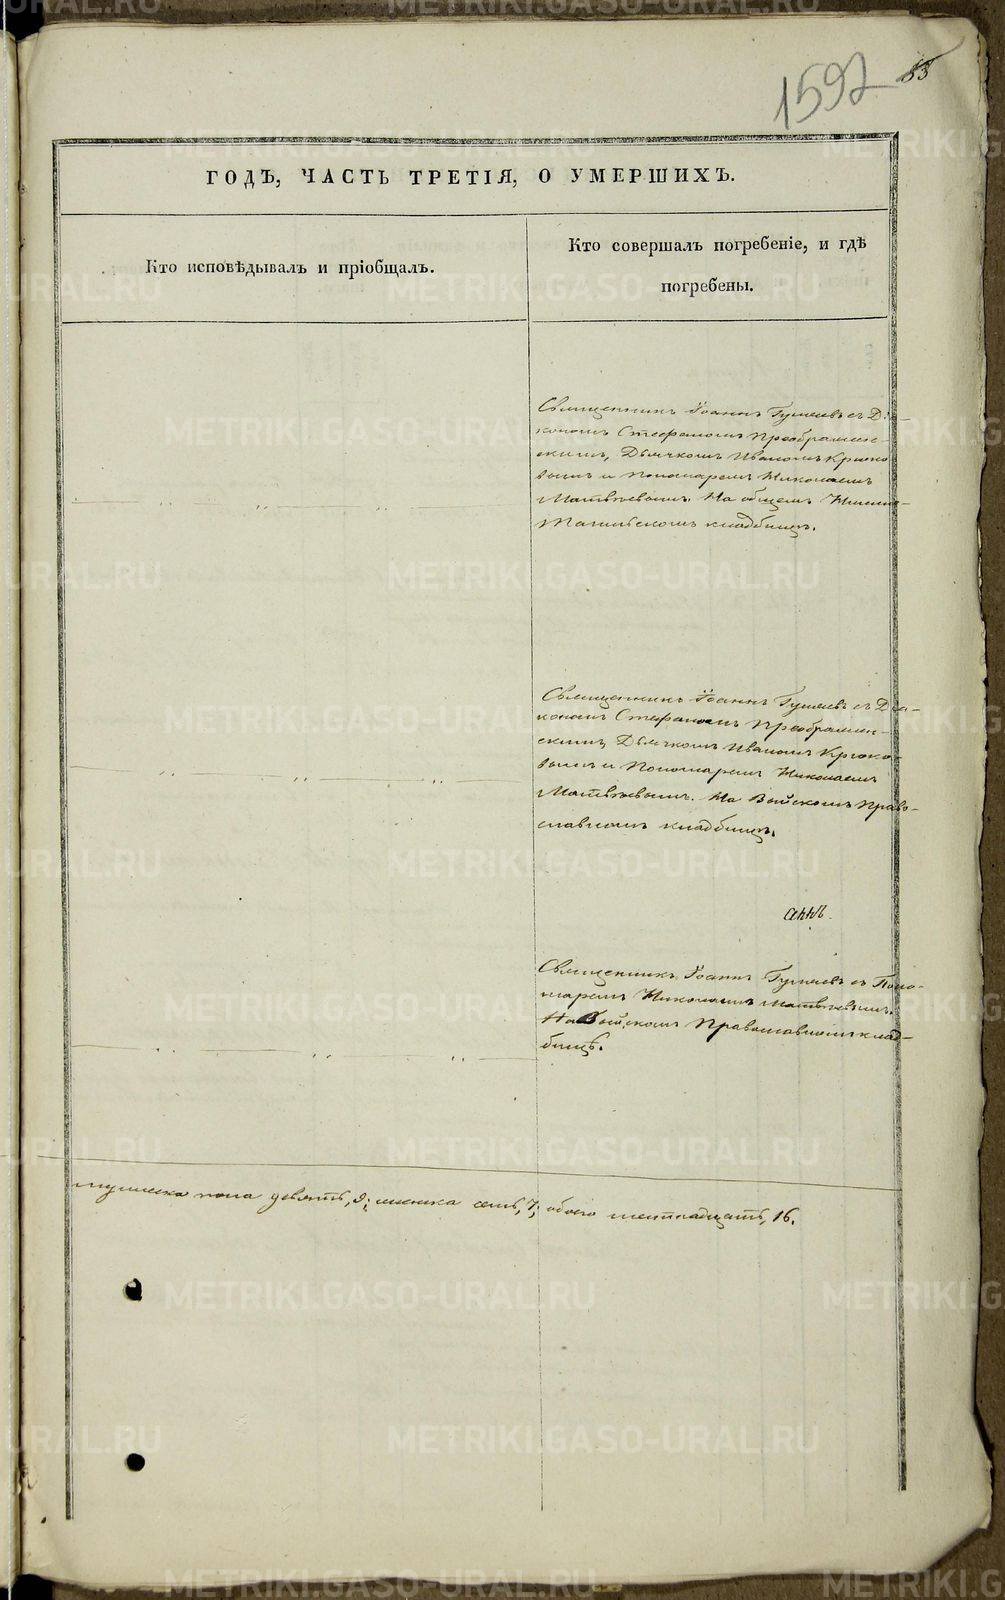 1592
55
ГОДЪ, ЧАСТЬ ТРЕТІЯ, О УМЕРШИХЪ.
Кто исповѣдывалъ и пріобщалъ.
Кто совершалъ погребеніе, и гдѣ
погребены.
Священникъ Іоаннъ Гуляевъ съ Діа-
кономъ Стефаномъ Преображен-
скимъ, Дьячкомъ Иваномъ Крюко
вымъ и Пономаремъ Николаемъ
Матвѣевымъ. На общемъ Нижне-
Тагильскомъ кладбищѣ.
Священникъ Іоаннъ Гуляевъ съ Діа-
кономъ Стефаномъ Преображен-
скимъ, Дьячкомъ Иваномъ Крюко-
вымъ и Пономаремъ Николаемъ
Матвѣевымъ. На Выйскомъ Право-
славномъ кладбищѣ.
Священникъ Іоаннъ Гуляевъ съ Поно-
маремъ Николаемъ Матвѣевымъ.
На Выйскомъ Православномъ клад-
бищѣ.
мужеска пола девять, 9; женска семь, 7; обоего шестнадцать, 16.
METRIKI.GASO-URAL.RU